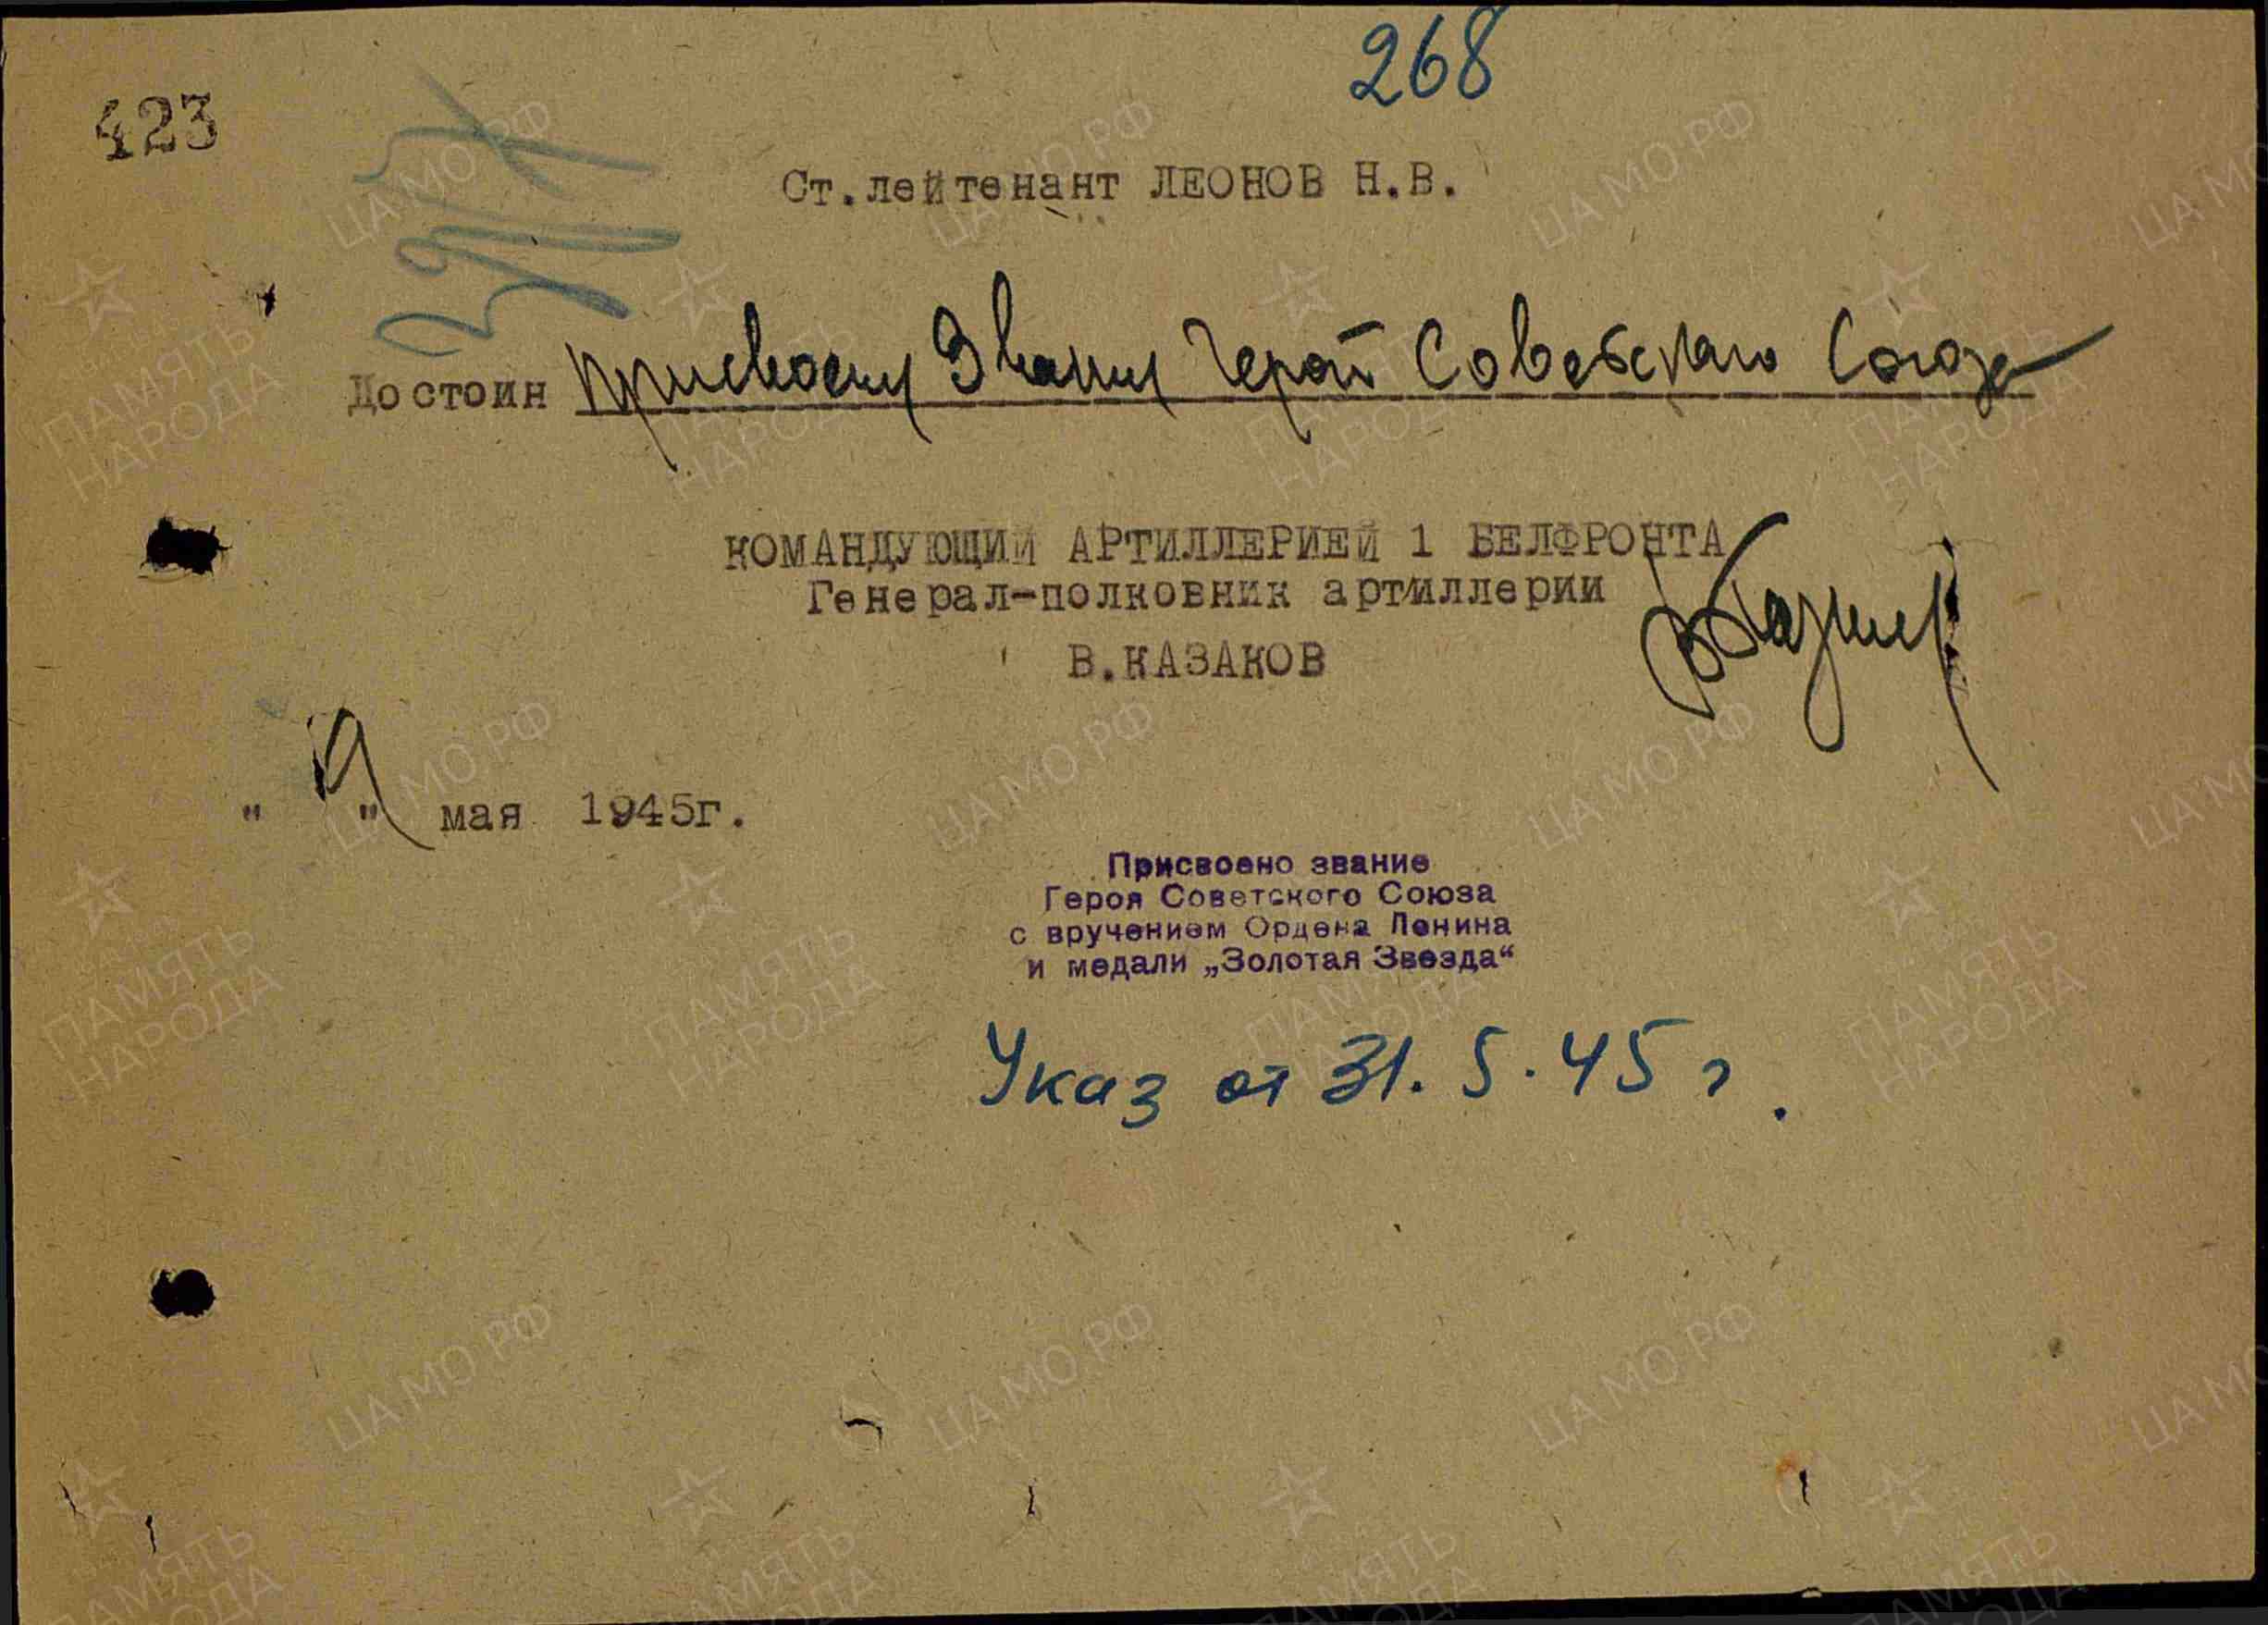 268
423
Ст.лейтенант ЛЕОНОВ Н.В.
Достоин присвоения Звания Герой Советского Союза
КОМАНДУЮЩИЙ АРТИЛЛЕРИЕЙ 1 БЕЛФРОНТА
Генерал-полковник артиллерии
В.КАЗАКОВ
" 9 " мая 1945г.
Присвоено звание
Героя Советского Союза
с вручением Ордена Ленина
и медали „Золотая Звезда“
Указ от 31.5.45 г.
ЦА МО РФ
ПАМЯТЬ
НАРОДА